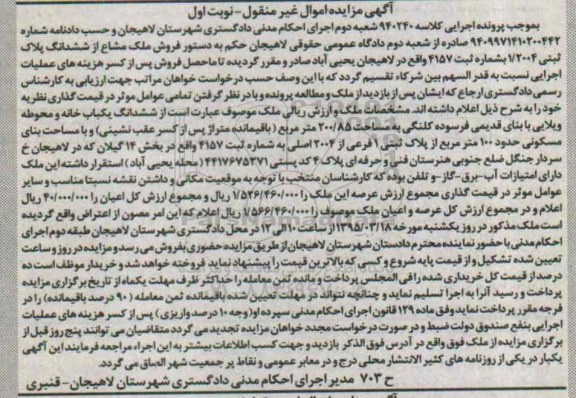 آگهی مزایده اموال غیر منقول- نوبت اول
بموجب پرونده اجرایی کلاسه ۹۴۰۲۴۰ شعبه دوم اجرای احکام مدنی دادگستری شهرستان لاهیجان و حسب دادنامه شماره
۹۴۰۹۹۷۱۴۱۰۲۰۰۴۴۲ صادره از شعبه دوم دادگاه عمومی حقوقی لاهیجان حکم به دستور فروش ملک مشاع از ششدانگ پلاک
ثبتی ۱/۲۰۰۴ بشماره ثبت ۴۱۵۷ واقع در لاهیجان یحیی آباد صادر و مقرر گردیده تا ماحصل فروش پس از کسر هزینه های عملیات
اجرایی نسبت به قدر السهم بین شرکاء تقسیم گردد که با این وصف حسب درخواست خواهان مراتب جهت ارزیابی به کارشناس
رسمی دادگستری ارجاع که ایشان پس از بازدید از ملک و مطالعه پرونده و با در نظر گرفتن تمامی عوامل موثر در قیمت گذاری نظریه
خود را به شرح ذیل اعلام داشته اند. مشخصات ملک و ارزش ریالی ملک موصوف عبارت است از ششدانگ یکباب خانه و محوطه
ویلایی با بنای قدیمی فرسوده کلنگی به مساحت ۲۰۰/۸۵ متر مربع ( باقیمانده متراژ پس از کسر عقب نشینی) و با مساحت بنای
مسکونی حدود ۱۰۰ متر مربع از پلاک ثبتی ۱ فرعی از ۲۰۰۴ اصلی به شماره ثبت ۴۱۵۷ واقع در بخش ۱۴ گیلان که در لاهیجان خ
سردار جنگل ضلع جنوبی هنرستان فنی و حرفه ای پلاک ۴ کد پستی ۴۴۱۷۶۷۵۳۷۱ (محله یحیی آباد ) استقرار داشته این ملک
دارای امتیازات آب-برق-گاز-و تلفن بوده که کارشناسان منتخب با توجه به موقعیت مکانی و داشتن نقشه نسبتا مناسب و سایر
عوامل موثر در قیمت گذاری مجموع ارزش عرصه این ملک را ۱/۵۲۶/۴۶۰/۰۰۰ ریال و مجموع ارزش کل اعیان را ۴۰/۰۰۰/۰۰۰ ریال
اعلام و در مجموع ارزش کل عرصه و اعیان ملک موصوف را ۱/۵۶۶/۴۶۰/۰۰۰ ریال اعلام که این امر مصون از اعتراض واقع گردیده
است ملک مذکور در روز یکشنبه مورخه ۱۳۹۵/۰۳/۱۸ از ساعت ۱۰ الی ۱۲ در محل دادگستری شهرستان لاهیجان طبقه دوم اجرای
احکام مدنی با حضور نماینده محترم دادستان شهرستان لاهیجان از طریق مزایده حضوری بفروش می رسد و مزایده در روز و ساعت
تعیین شده تشکیل و از قیمت پایه شروع و کسی که بالاترین قیمت را پیشنهاد نماید فروخته خواهد شد و خریدار موظف است ده
درصد از قیمت کل خریداری شده را فی المجلس پرداخت و مانده ثمن معامله را حداکثر ظرف مهلت یکماه از تاریخ برگزاری مزایده
پرداخت و رسید آنرا به اجرا تسلیم نماید و چنانچه نتواند در مهلت تعیین شده باقیمانده ثمن معامله ( ۹۰ درصد باقیمانده) را در
فرجه مقرر پرداخت نماید وفق ماده ۱۲۹ قانون اجرای احکام مدنی سپرده او( وجه ۱۰ درصد واریزی ) پس از کسر هزینه های عملیات
اجرایی بنفع صندوق دولت ضبط و در صورت درخواست مجدد خواهان مزایده تجدید می گردد متقاضیان می توانند پنج روز قبل از
برگزاری مزایده از ملک فوق واقع در آدرس فوق الذکر بازدید و جهت کسب اطلاعات بیشتر به این اجراء مراجعه فرمایند این آگهی
یکبار در یکی از روزنامه های کثیر الانتشار محلی درج و در معابر عمومی و نقاط پر جمعیت شهر الصاق می گردد.
ح ۷۰۳ مدیر اجرای احکام مدنی دادگستری شهرستان لاهیجان- قنبری